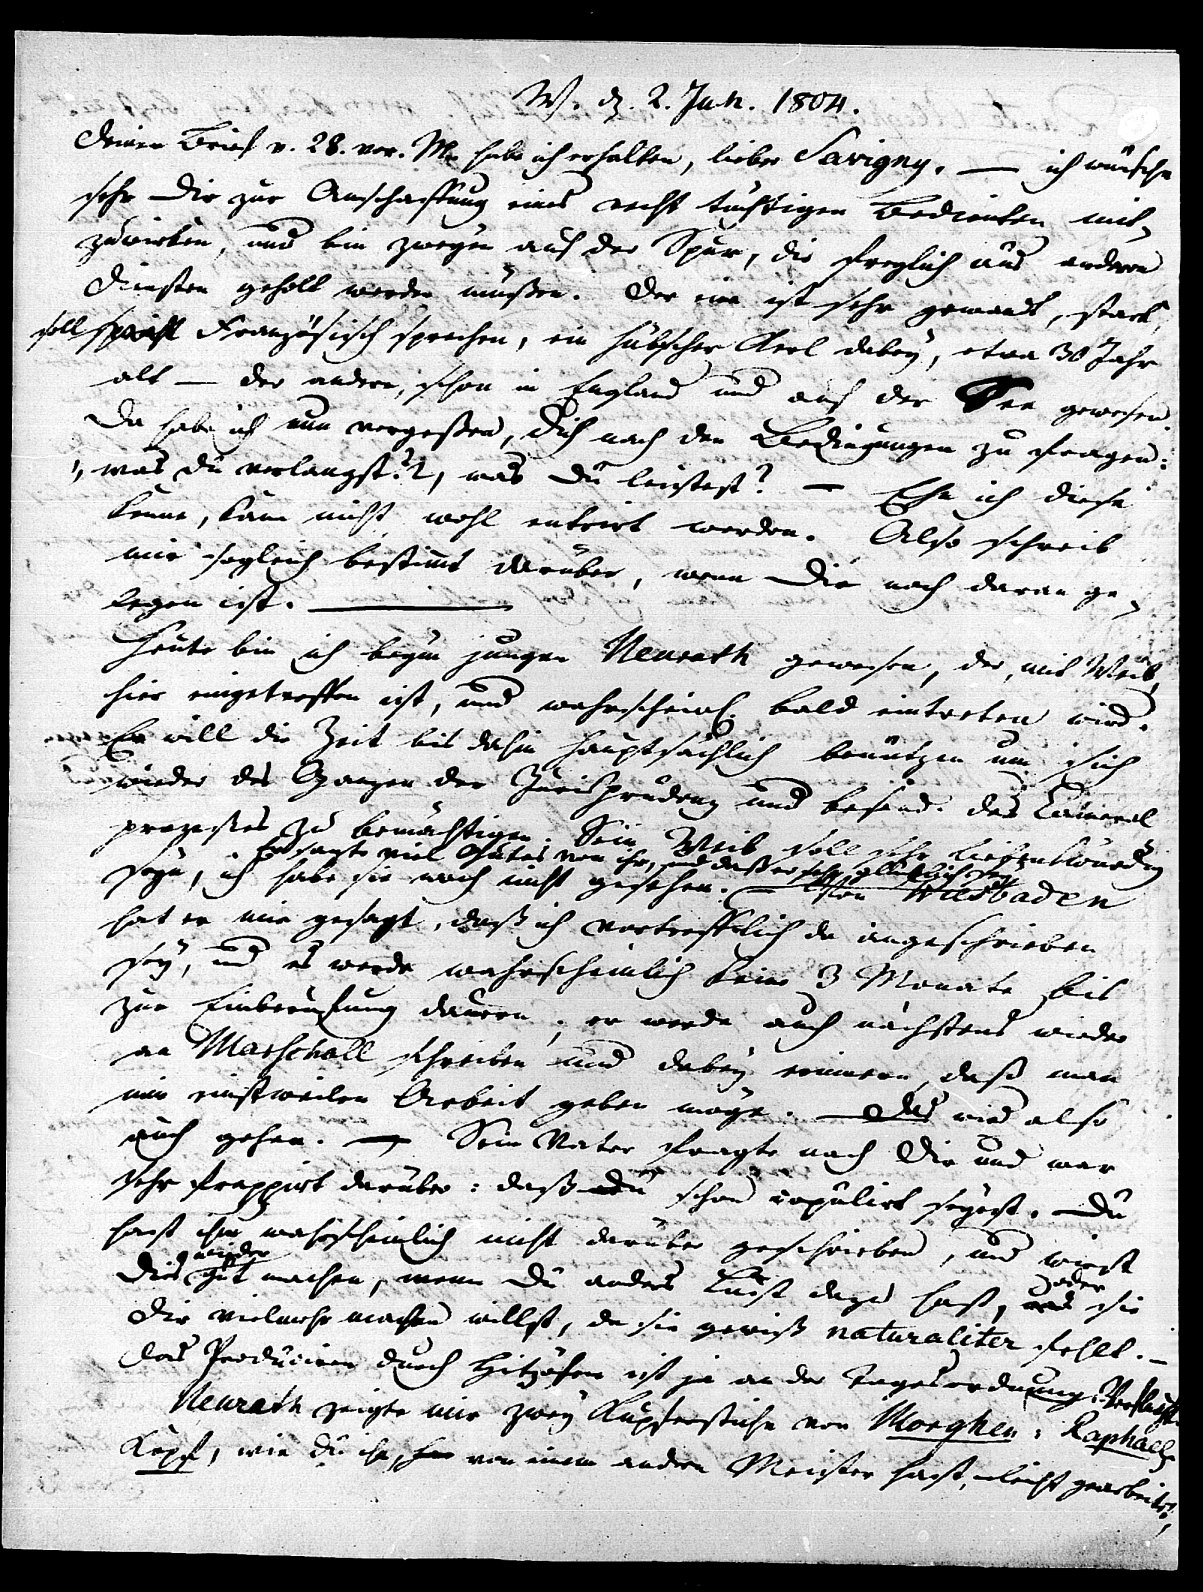 W. d. 2. Jun. 1804.
Deinen Brief v. 28. vor. M. habe ich erhalten, lieber Savigny. — ich wünsche
sehr Dir zur Anschaffung eines recht tüchtigen Bedienten mit
zuwirken, und bin zweyen auf der Spur, die freylich aus andern
Diensten geholt werden müßen. Der eine ist sehr gewandt, stark,
soll Französisch sprechen, ein hübscher Kerl dabey, etwa 30 Jahr
alt — der andere, schon in England und auf der See gewesen.
Da habe ich nun vergeßen, Dich nach den Bedingungen zu fragen:
1, was du verlangst? 2, was Du leistest? — Ehe ich diese
kenne, kann nicht wohl entrirt werden. Also schreib
mir sogleich bestimt darüber, wenn Dir noch daran ge-
legen ist. —
Heute bin ich beym jungen Neurath gewesen, der mit Weib
hier eingetroffen ist, und wahrscheinl. bald eintreten wird.
Er will die Zeit bis dahin hauptsächlich benutzen um sich
wieder des Ganzen der Jurisprudenz und besond. des Cameral
prozeßes zu bemächtigen. Sein Weib soll sehr liebenswürdig
Er sagte viel Gutes von ihr, und daß er sehr glücklich sey
seyn, ich habe sie noch nicht gesehen. — Von Wiesbaden
hat er mir gesagt, daß ich vortrefflich da angeschrieben
sey, und es werde wahrscheinlich keine 3 Monate bis
zur Einberufung dauern, er werde auch nächstens wieder
an Marschall schreiben und dabey erinnern, daß man
mir einstweilen Arbeit geben möge. — Das wird also
auch gehen. — Sein Vater fragte nach Dir und war
sehr frappirt darüber: daß du schon copulirt seyest. Du
hast ihm wahrscheinlich nicht darüber geschrieben, und wirst
wieder
dies gut machen, wenn Du anders Lust dazu hast, oder sie
Dir vielmehr machen willst, da sie gewiß naturaliter fehlt. —
Das Produciren durch Hitzöfen ist ja an der Tagesordnung.
Neurath zeigte mir zwey Kupferstiche von Morghen: Raphaels
Kopf, wie Du ihn von einem andern Meister hast, leicht gearbeitet,